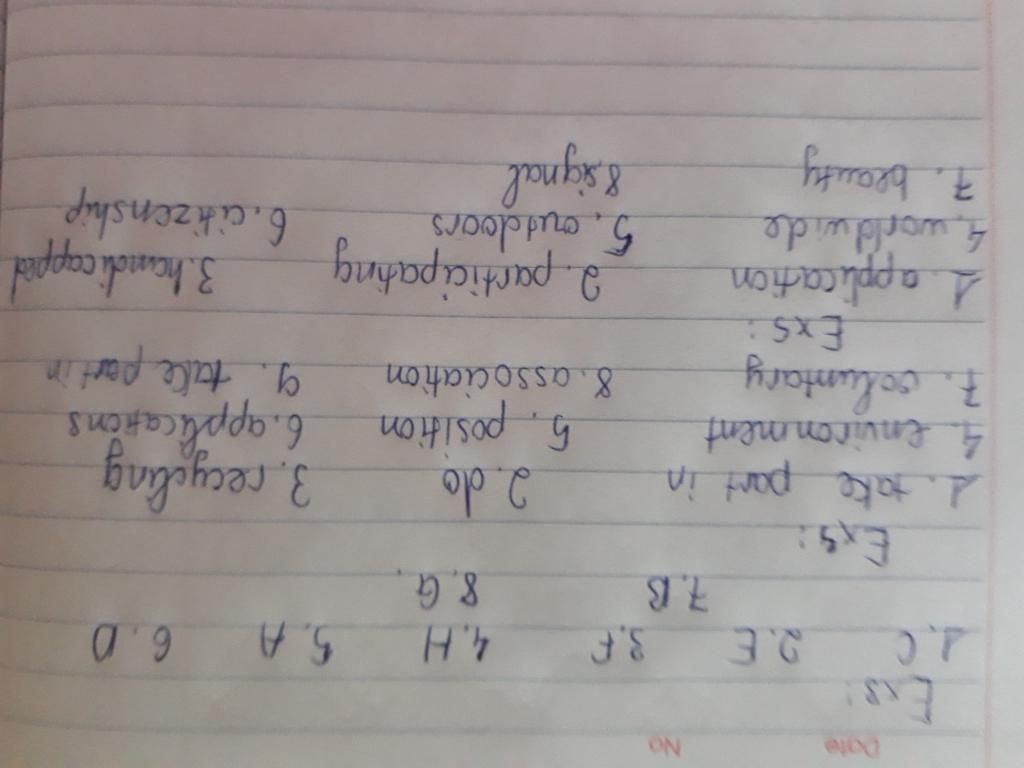 Date No
Ex3:
1. C 2. E 3. F 4. H 5. A 6. D
7. B 8. G.
Ex4:
1. take part in 2. do 3. recycling
4. environment 5. position 6. applications
7. voluntary 8. association 9. take part in
Ex5:
1. application 2. participating 3. handicapped
4. worldwide 5. outdoors 6. citizenship
7. beauty 8. signal